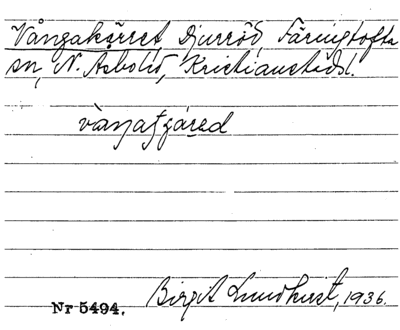 Vångakärret, Djurröd, Färingtofta
sn, N. Åsbo hd, Kristianstads l.
Birgit Lundkvist, 1936.
Nr 5494.